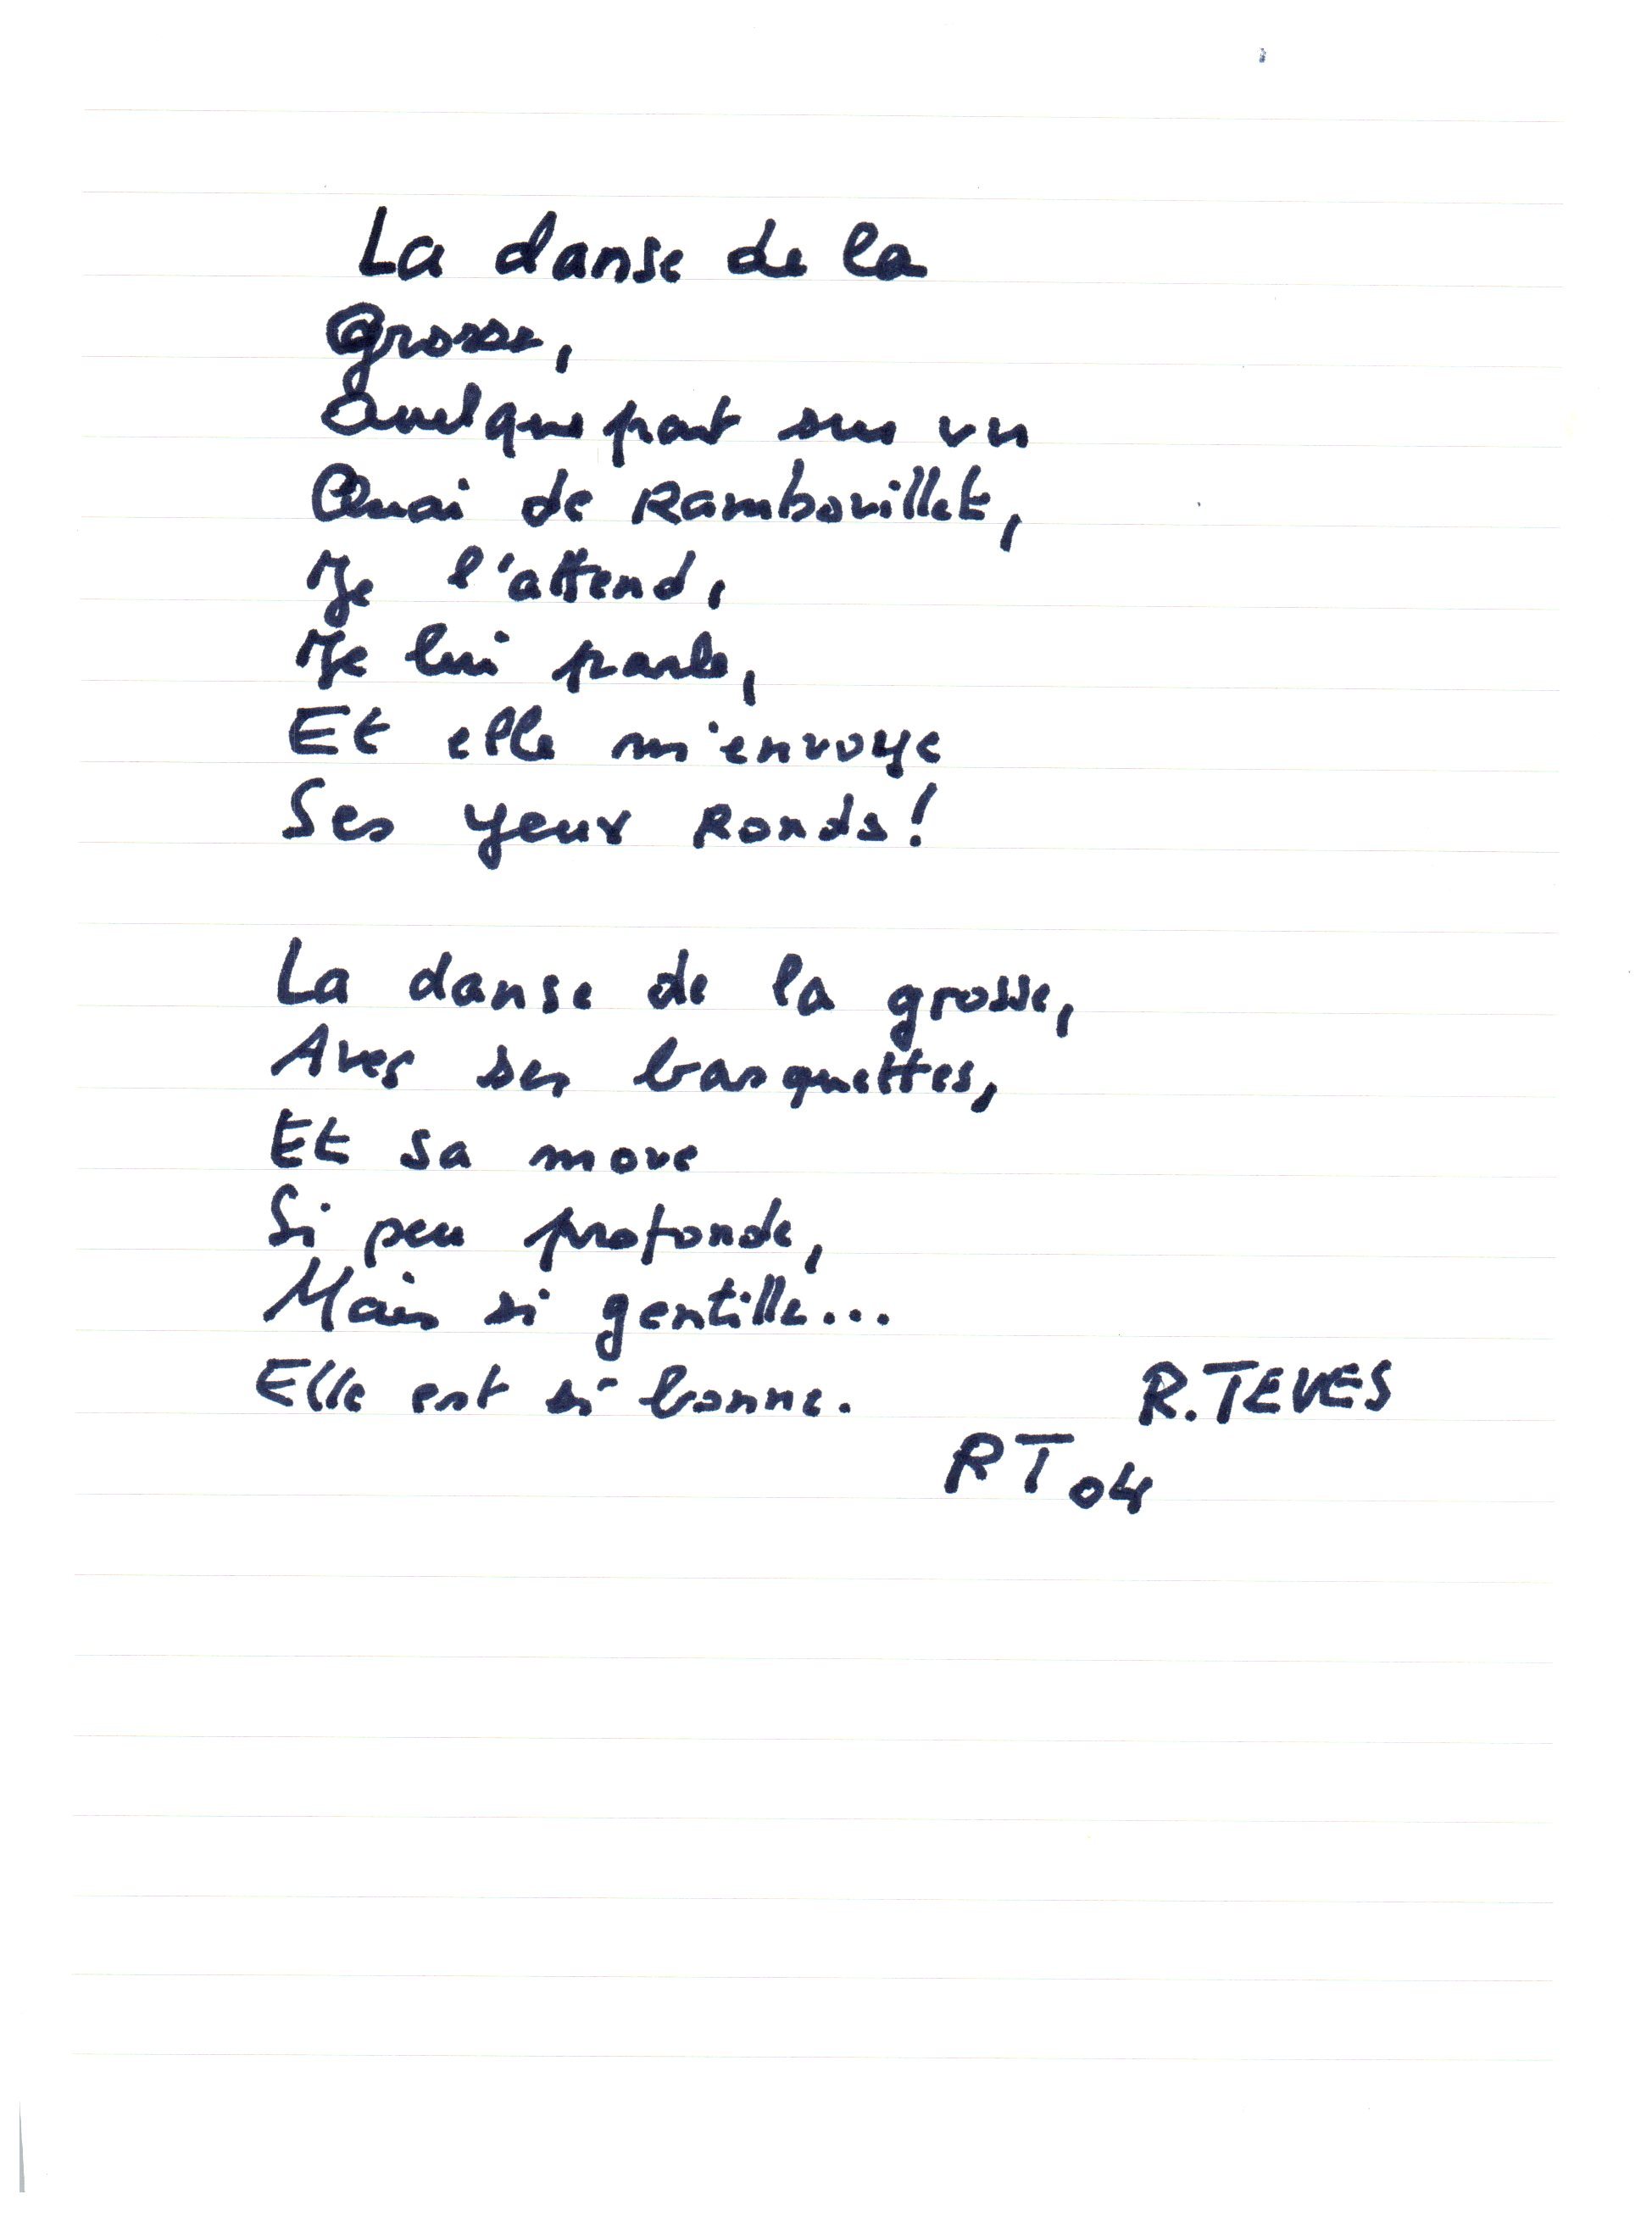 La danse de la
Grosse,
Quelque part sur un
Quai de Rambouillet,
Je l'attend,
Je lui parle,
Et elle m'envoye
Ses yeux Ronds!
La danse de la grosse,
Avec ses basquettes,
Et sa moue
Si peu profonde,
Mais si gentille...
Elle est si bonne.
R. TEVES
RT 04